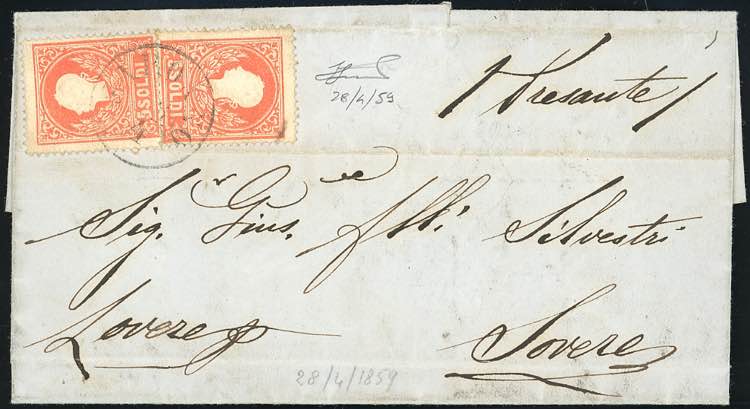 5 SOLDI
SOLDI
28/4/59
/ Pressante /
Sig.r Gius.e flli: Silvestri
Lovere p
Sovere
28/4/1859